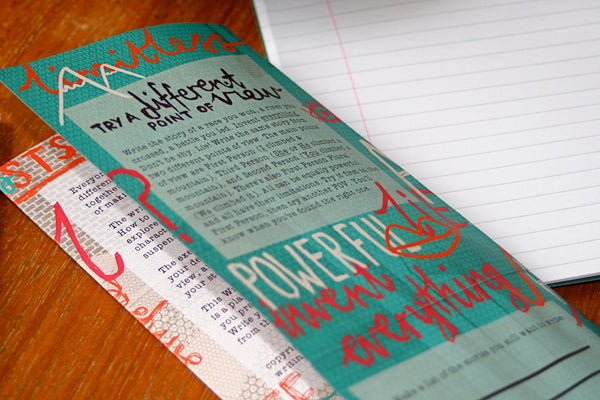 limitless
TRY A different
POINT OF View
Write the story of a race you won, a river you
crossed, a battle you led. Invent everything.
Don't be shy. Lie! Write the same story from
two different points of view. The main points
of view are First Person (I climbed a
mountain), Third Person (She or He climbed a
mountain), and Second Person (You climbed a
mountain). There's also First Person Plural
(We climbed it). All can be equally powerful
and all have their limitations. Try it freely in
First Person, then try another POV. You'll
know when you've found the right one.
POWERFUL
invent
everything
Make a list of the stories you still want to write:
STS
Everyon
different
togethe
of maki
The wr
How to
explore
charact
suspen
The exe
your de
view, a
your st
This W
is a pla
you pro
Write y
from th
copyri
writin